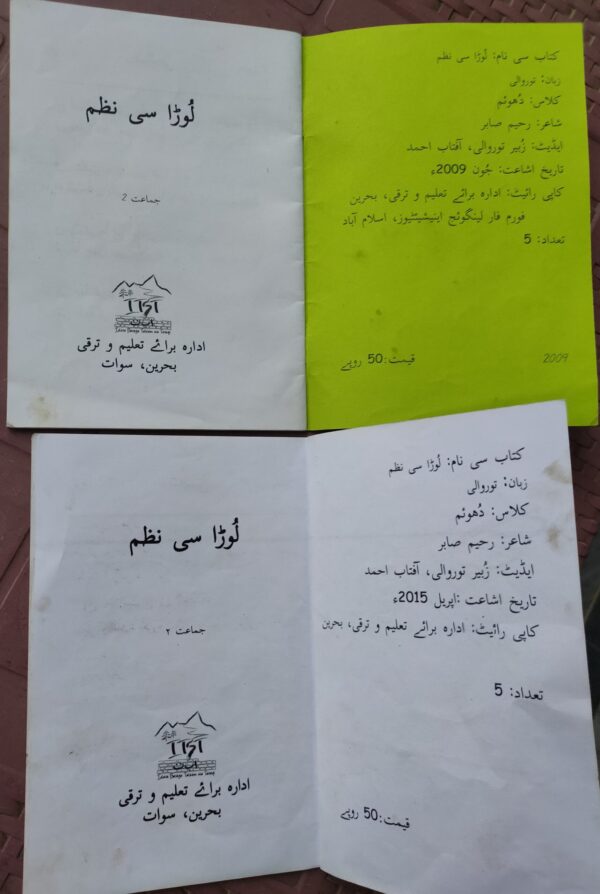 لُوڑا سی نظم
جماعت 2
ادارہ برائے تعلیم و ترقی
بحرین، سوات
کتاب سی نام: لُوڑا سی نظم
زبان: توروالی
کلاس: دُھوئم
شاعر: رحیم صابر
ایڈیٹ: زُبیر توروالی، آفتاب احمد
تاریخ اشاعت: جُون 2009ء
کاپی رائیٹ: ادارہ برائے تعلیم و ترقی، بحرین
فورم فار لینگوئج اینیشیٹیوز، اسلام آباد
تعداد: 5
قیمت:50 روپے
2009
لُوڑا سی نظم
جماعت ۲
ادارہ برائے تعلیم و ترقی
بحرین، سوات
کتاب سی نام: لُوڑا سی نظم
زبان: توروالی
کلاس: دُھوئم
شاعر: رحیم صابر
ایڈیٹ: زُبیر توروالی، آفتاب احمد
تاریخ اشاعت :اپریل 2015ء
کاپی رائیٹ: ادارہ برائے تعلیم و ترقی، بحرین
تعداد: 5
قیمت:50 روپے